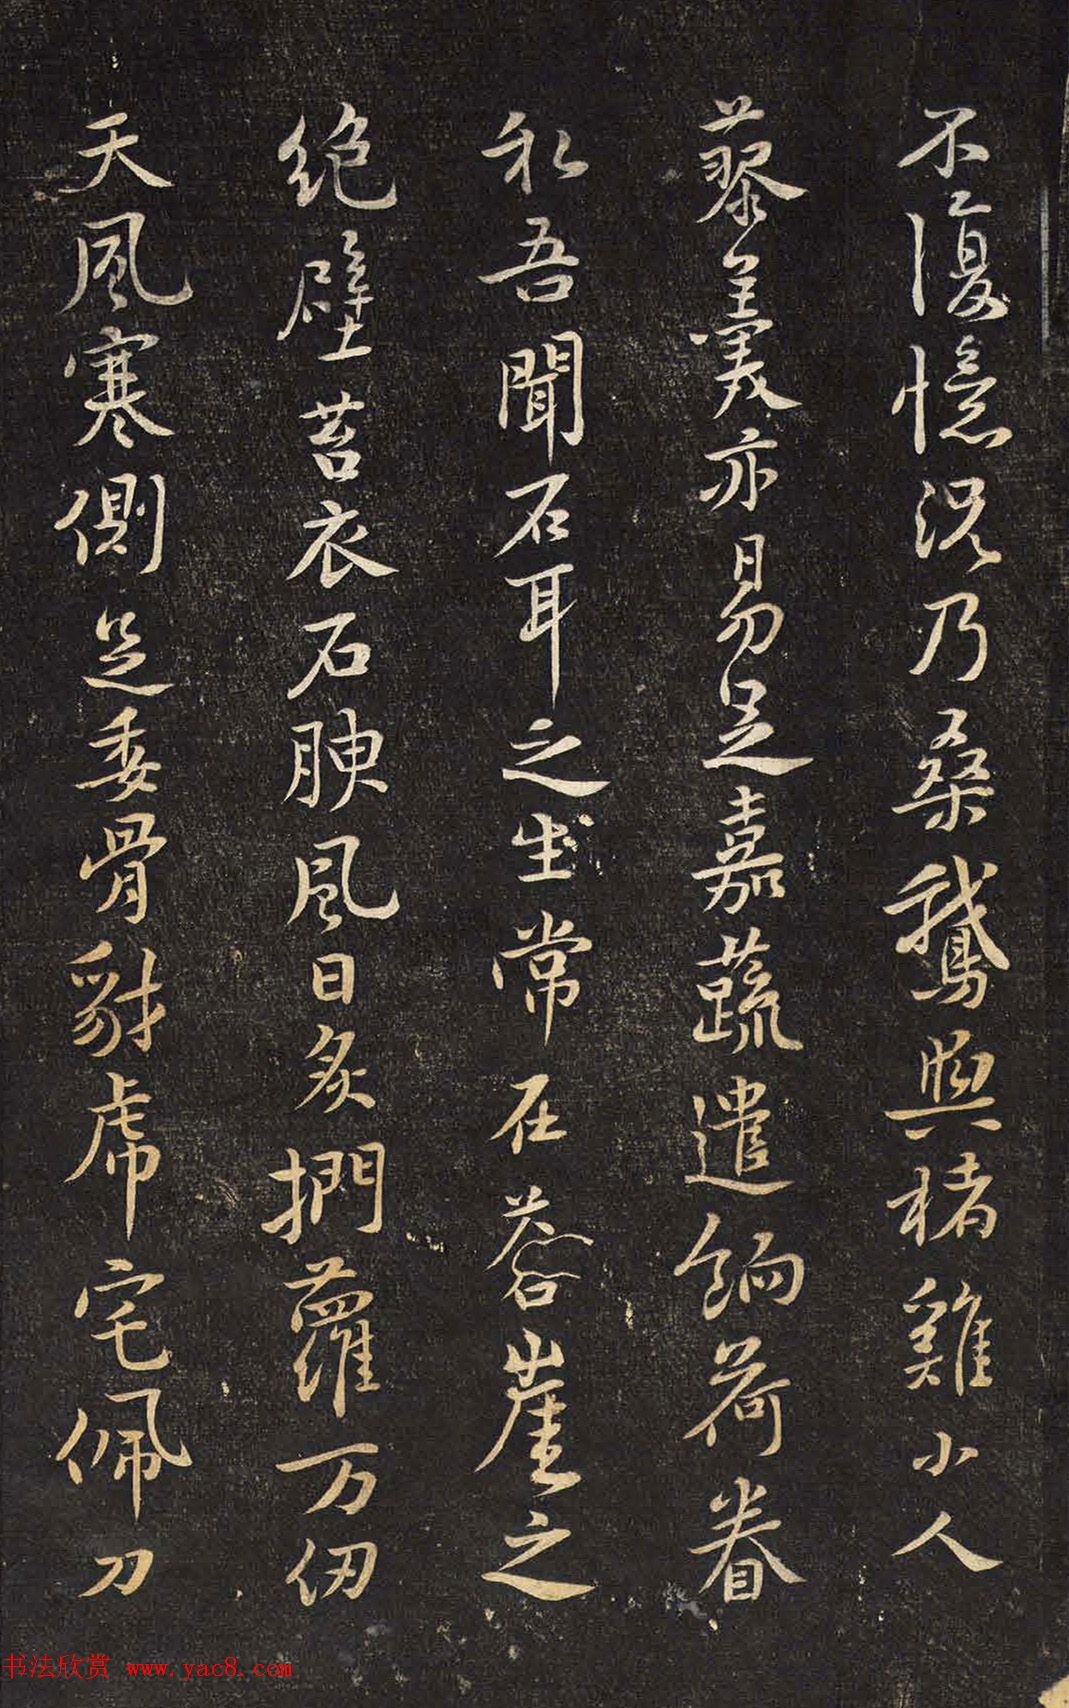 不復憶況乃桑鵝與楮雞小人
藜羹亦易足嘉蔬遣餉荷眷
私吾聞石耳之生常在蒼崖之
绝壁苔衣石腴風日炙捫蘿万仞
天風寒側足委骨豺虎宅佩刀
书法欣赏 www.yac8.com